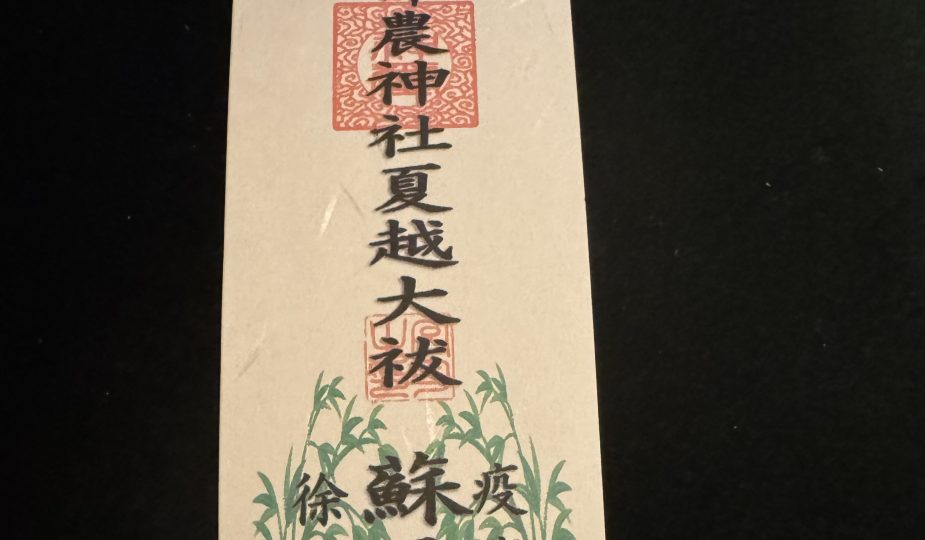 農神社夏越大祓
疫
蘇
徐